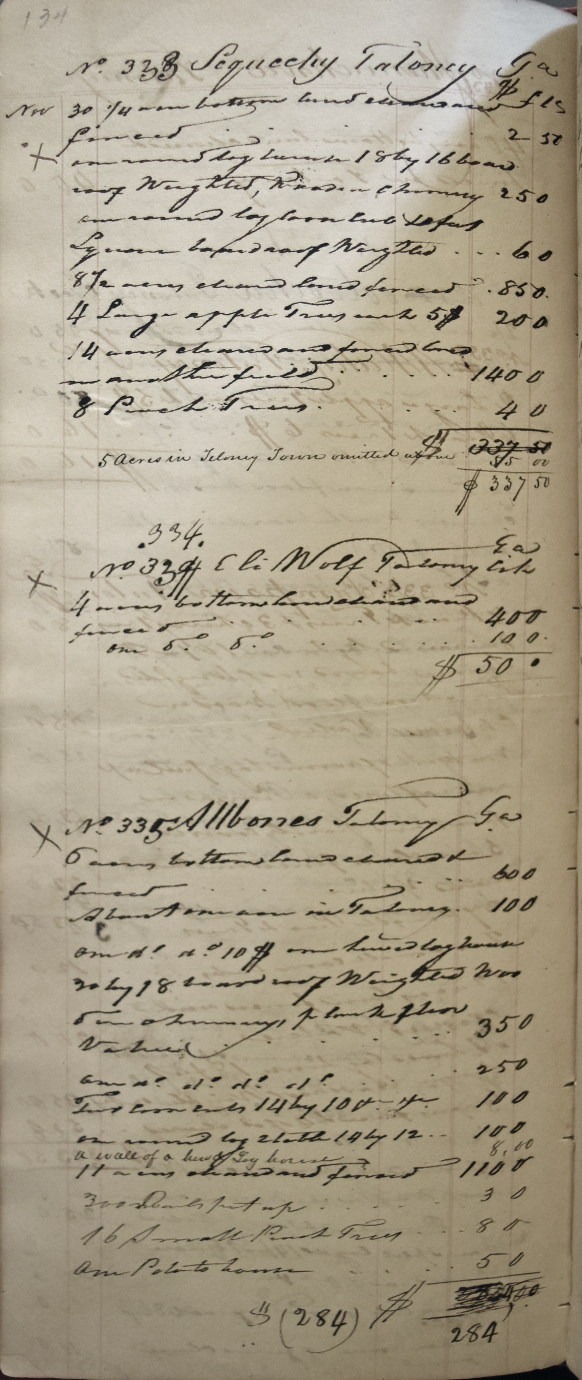 134
No. 333 Sequechy Taloney Ga
$ cts
Nov 30 1/4 acre bottom land cleared and
fenced 2 50
X one round log house 18 by 16 board
roof Weighted, Wooden Chimney 250
one round log corn crib 10 feet
Square board roof Weighted 60
8 1/2 acres cleared land fenced 850
4 Large apple Trees each 5$ 200
14 acres cleared and fenced land
in another field 1400
8 Peach Trees 40
$ 337 50
5 Acres in Teloney Town omitted above 55 00
$ 337 50
334
X No. 334 Eli Wolf Taloney Ga
4 acres bottom land cleared and
fenced 400
one do. do. 100
$ 50
X No. 335 Allbones Taloney Ga
6 acres bottom land cleared &
fenced 600
About one acre in Taloney 100
one do. do. 10$ one hewed log house
20 by 18 board roof Weighted Woo
den chimneys plank floor
Valued 350
one do. do. do. do. 250
Two corn cribs 14 by 10 100
one round log stable 14 by 12 100
a wall of a hewd Log house 8,00
11 acres cleared and fenced 1100
300 Rails put up 30
16 Small Peach Trees 80
One Potato house 50
$ (284) $ 284